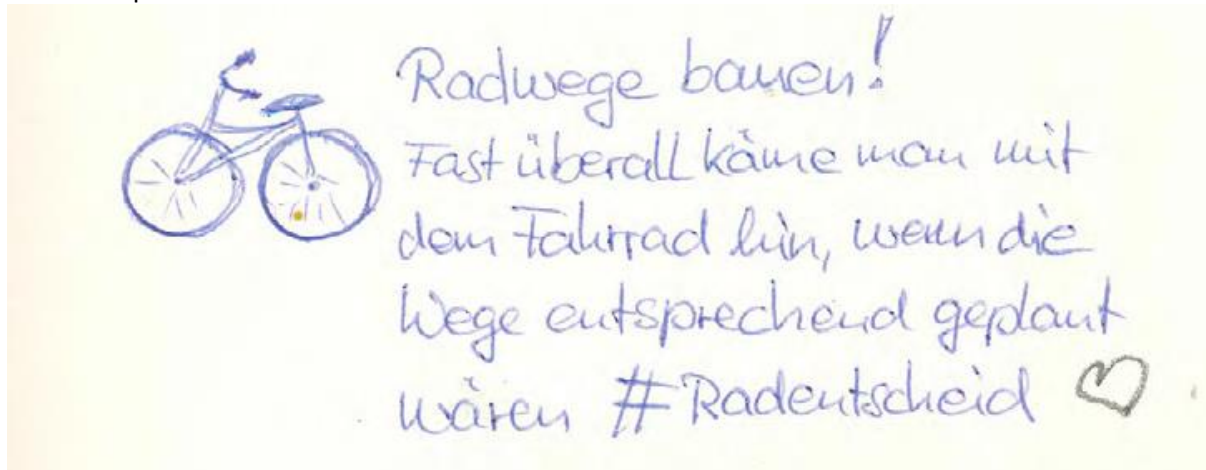 Radwege bauen!
Fast überall käme man mit
dem Fahrrad hin, wenn die
Wege entsprechend geplant
wären #Radentscheid ♡